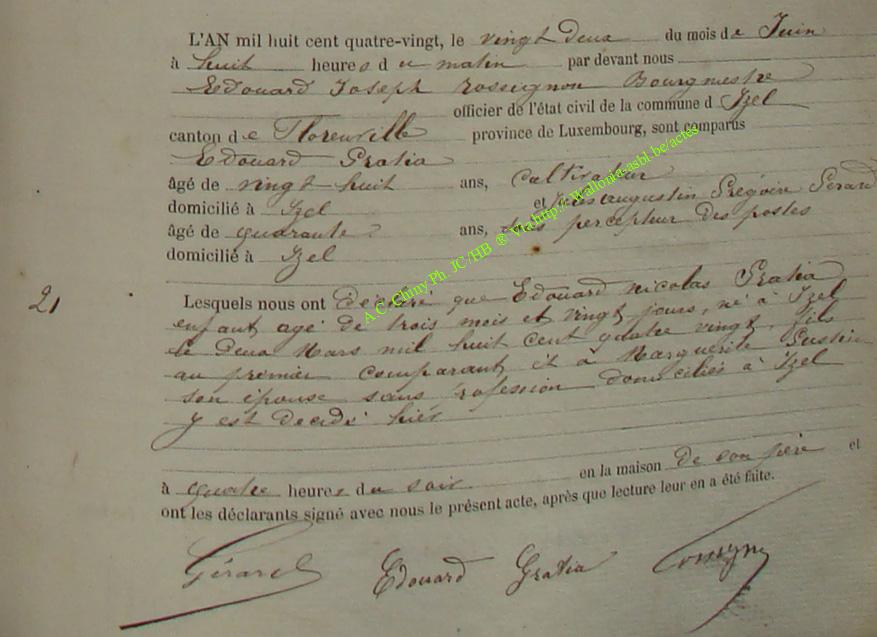 L'AN mil huit cent quatre-vingt, le vingt deux du mois de Juin
à huit heures du matin par devant nous
Edouard Joseph Rossignon Bourgmestre
officier de l'état civil de la commune d Izel
canton de Florenville province de Luxembourg, sont comparus
Edouard Gratia
âgé de vingt huit ans, Cultivateur
domicilié à Izel et augustin Grégoire Gérard
âgé de quarante ans, percepteur des postes
domicilié à Izel
21
Lesquels nous ont Déclaré que Edouard Nicolas Gratia
enfant agé de trois mois et vingt jours, né à Izel
le Deux Mars mil huit cent quatre vingt, fils
au premier comparant et à Marguerite
son épouse sans domiciliés à Izel
y est décédé hier
à quatre heures du soir en la maison de son père et
ont les déclarants signé avec nous le présent acte, après que lecture leur en a été faite.
Gérard Edouard Gratia
A.C. Chiny Ph JC/HB ® Via http://Wallonia-asbl.be/actes